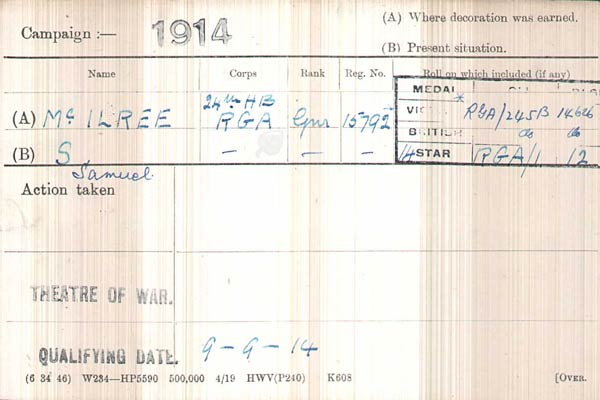 Campaign :— 1914
(A) Where decoration was earned.
(B) Present situation.
Name Corps Rank Reg. No. Roll on which included (if any)
MEDAL
24th HB
(A) Mc ILREE RGA Gnr 15792
VIC * RGA/245B 14626
BRITISH do do
(B) S — — —
14 STAR RGA/1 12
Samuel
Action taken
THEATRE OF WAR.
QUALIFYING DATE. 9-9-14
(6 34 46) W234—HP5590 500,000 4/19 HWV(P240) K608 [OVER.